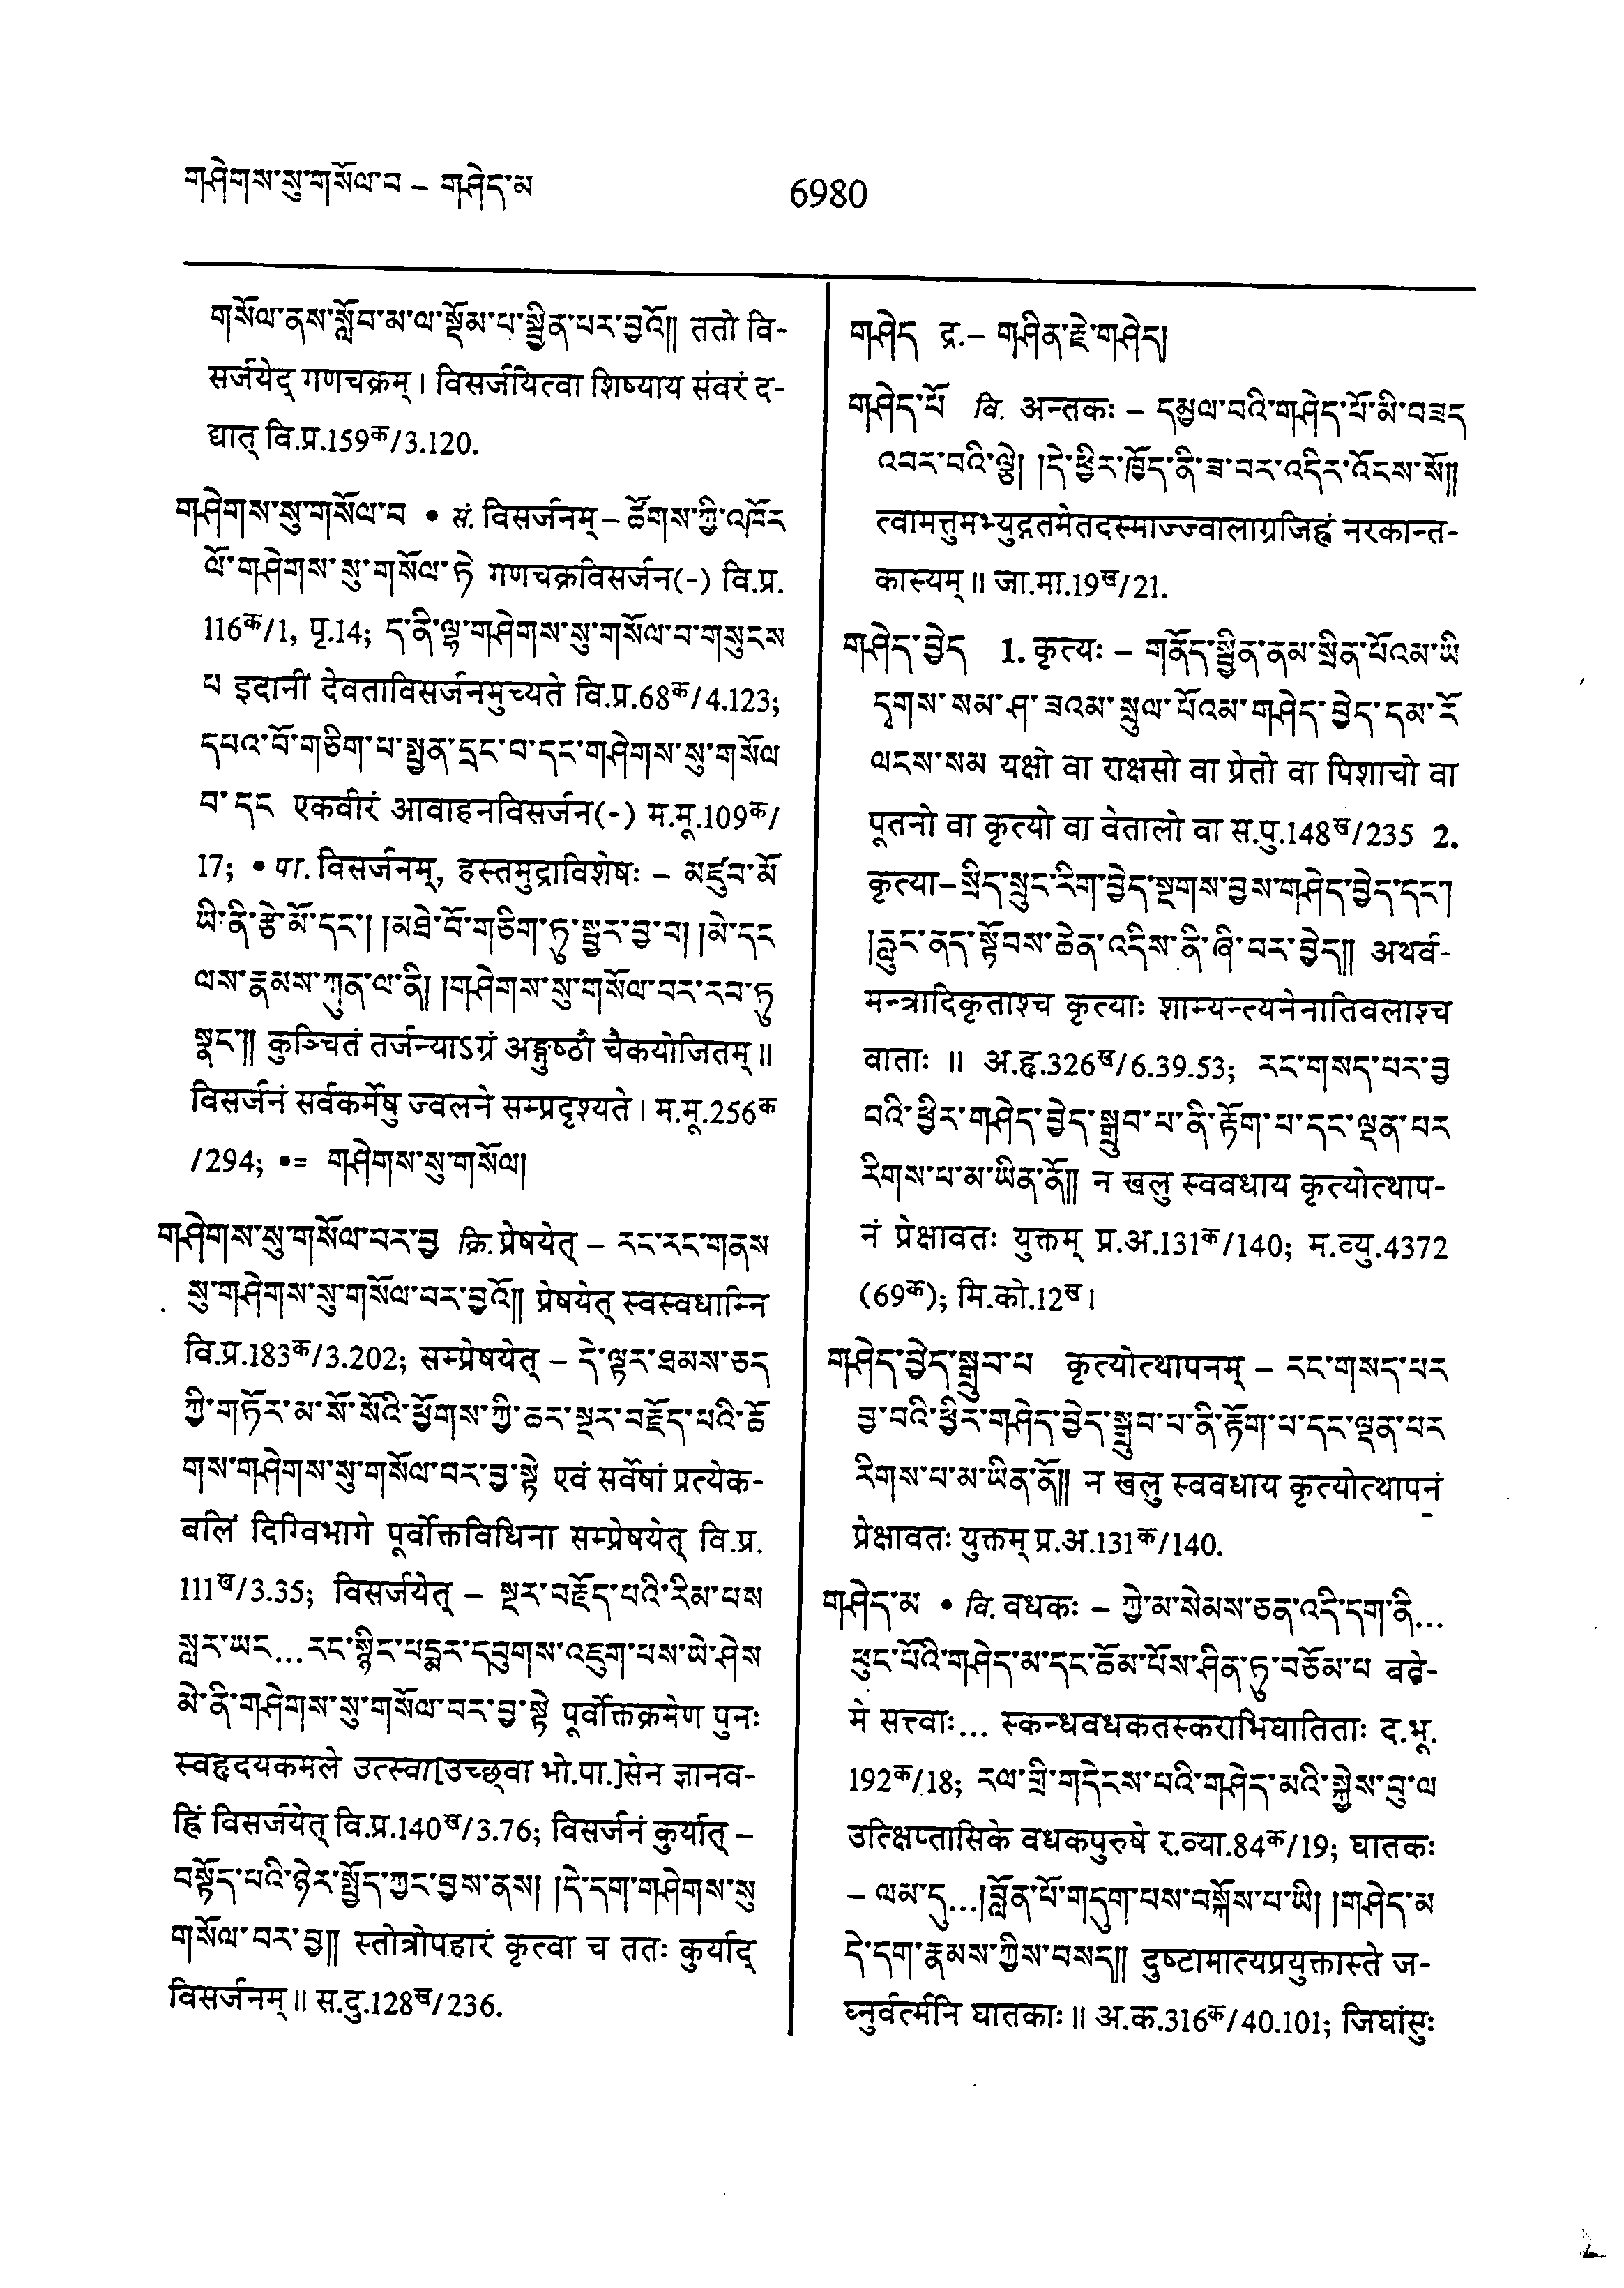 གཤེགས་སུ་གསོལ་བ – གཤེད་མ
6980
གསོལ་ནས་སློབ་མ་ལ་སྡོམ་པ་སྦྱིན་པར་བྱའོ།། ततो वि-
सर्जयेद् गणचक्रम् । विसर्जयित्वा शिष्याय संवरं द-
द्यात् वि.प्र.159क/3.120.
གཤེགས་སུ་གསོལ་བ • सं. विसर्जनम् – ཚོགས་ཀྱི་འཁོར
ལོ་གཤེགས་སུ་གསོལ་ཏེ गणचक्रविसर्जन(-) वि.प्र.
116क/1, पृ.14; ད་ནི་ལྷ་གཤེགས་སུ་གསོལ་བ་གསུངས
པ इदानीं देवताविसर्जनमुच्यते वि.प्र.68क/4.123;
དཔའ་བོ་གཅིག་པ་སྤྱན་དྲང་བ་དང་གཤེགས་སུ་གསོལ
བ་དང एकवीरं आवाहनविसर्जन(-) म.मू.109क/
17; • पा. विसर्जनम्, हस्तमुद्राविशेषः – མཛུབ་མོ
ཡི་ནི་རྩེ་མོ་དང་། །མཐེ་བོ་གཅིག་ཏུ་སྦྱར་བྱ་བ། །མེ་དང
ལས་རྣམས་ཀུན་ལ་ནི། །གཤེགས་སུ་གསོལ་བར་རབ་ཏུ
སྣང་།། कुञ्चितं तर्जन्याऽग्रं अङ्गुष्ठौ चैकयोजितम् ॥
विसर्जनं सर्वकर्मेषु ज्वलने सम्प्रदृश्यते । म.मू.256क
/294; •= གཤེགས་སུ་གསོལ།
གཤེགས་སུ་གསོལ་བར་བྱ क्रि. प्रेषयेत् – རང་རང་གནས
སུ་གཤེགས་སུ་གསོལ་བར་བྱའོ།། प्रेषयेत् स्वस्वधाम्नि
वि.प्र.183क/3.202; सम्प्रेषयेत् – དེ་ལྟར་ཐམས་ཅད
ཀྱི་གཏོར་མ་སོ་སོའི་ཕྱོགས་ཀྱི་ཆར་སྔར་བརྗོད་པའི་ཆོ
གས་གཤེགས་སུ་གསོལ་བར་བྱ་སྟེ एवं सर्वेषां प्रत्येक-
बलिं दिग्विभागे पूर्वोक्तविधिना सम्प्रेषयेत् वि.प्र.
111ख/3.35; विसर्जयेत् – སྔར་བརྗོད་པའི་རིམ་པས
སླར་ཡང...རང་སྙིང་པདྨར་དབུགས་འཇུག་པས་ཡེ་ཤེས
མེ་ནི་གཤེགས་སུ་གསོལ་བར་བྱ་སྟེ पूर्वोक्तक्रमेण पुनः
स्वहृदयकमले उत्स्वा[उच्छ्वा भो.पा.]सेन ज्ञानव-
ह्निं विसर्जयेत् वि.प्र.140ख/3.76; विसर्जनं कुर्यात् –
བསྟོད་པའི་ཉེར་སྤྱོད་ཀྱང་བྱས་ནས། །དེ་དག་གཤེགས་སུ
གསོལ་བར་བྱ།། स्तोत्रोपहारं कृत्वा च ततः कुर्याद्
विसर्जनम् ॥ स.दु.128ख/236.
གཤེད द्र.– གཤིན་རྗེ་གཤེད།
གཤེད་པོ वि. अन्तकः – དམྱལ་བའི་གཤེད་པོ་མི་བཟད
འབར་བའི་ལྕེ། །དེ་ཕྱིར་ཁྱོད་ནི་ཟ་བར་འདིར་འོངས་སོ།།
त्वामत्तुमभ्युद्गतमेतदस्माज्ज्वालाग्रजिह्वं नरकान्त-
कास्यम् ॥ जा.मा.19ख/21.
གཤེད་བྱེད 1. कृत्यः – གནོད་སྦྱིན་ནམ་སྲིན་པོའམ་ཡི
དྭགས་སམ་ཤ་ཟའམ་སྲུལ་པོའམ་གཤེད་བྱེད་དམ་རོ
ལངས་སམ यक्षो वा राक्षसो वा प्रेतो वा पिशाचो वा
पूतनो वा कृत्यो वा वेतालो वा स.पु.148ख/235 2.
कृत्या–སྲིད་སྲུང་རིག་བྱེད་སྔགས་བྱས་གཤེད་བྱེད་དང་།
།རླུང་ནད་སྟོབས་ཆེན་འདིས་ནི་ཞི་བར་བྱེད།། अथर्व-
मन्त्रादिकृताश्च कृत्याः शाम्यन्त्यनेनातिबलाश्च
वाताः ॥ अ.हृ.326ख/6.39.53; རང་གསད་པར་བྱ
བའི་ཕྱིར་གཤེད་བྱེད་སྒྲུབ་པ་ནི་རྟོག་པ་དང་ལྡན་པར
རིགས་པ་མ་ཡིན་ནོ།། न खलु स्ववधाय कृत्योत्थाप-
नं प्रेक्षावतः युक्तम् प्र.अ.131क/140; म.व्यु.4372
(69क); मि.को.12ख ।
གཤེད་བྱེད་སྒྲུབ་པ कृत्योत्थापनम् – རང་གསད་པར
བྱ་བའི་ཕྱིར་གཤེད་བྱེད་སྒྲུབ་པ་ནི་རྟོག་པ་དང་ལྡན་པར
རིགས་པ་མ་ཡིན་ནོ།། न खलु स्ववधाय कृत्योत्थापनं
प्रेक्षावतः युक्तम् प्र.अ.131क/140.
གཤེད་མ • वि. वधकः – ཀྱེ་མ་སེམས་ཅན་འདི་དག་ནི...
ཕུང་པོའི་གཤེད་མ་དང་ཆོམ་པོས་ཤིན་ཏུ་བཅོམ་པ बते-
मे सत्त्वाः... स्कन्धवधकतस्कराभिघातिताः द.भू.
192क/18; རལ་གྲི་གདེངས་པའི་གཤེད་མའི་སྐྱེས་བུ་ལ
उत्क्षिप्तासिके वधकपुरुषे र.व्या.84क/19; घातकः
– ལམ་དུ...།བློན་པོ་གདུག་པས་བསྐོས་པ་ཡི། །གཤེད་མ
དེ་དག་རྣམས་ཀྱིས་བསད།། दुष्टामात्यप्रयुक्तास्ते ज-
घ्नुर्वर्त्मनि घातकाः ॥ अ.क.316क/40.101; जिघांसुः